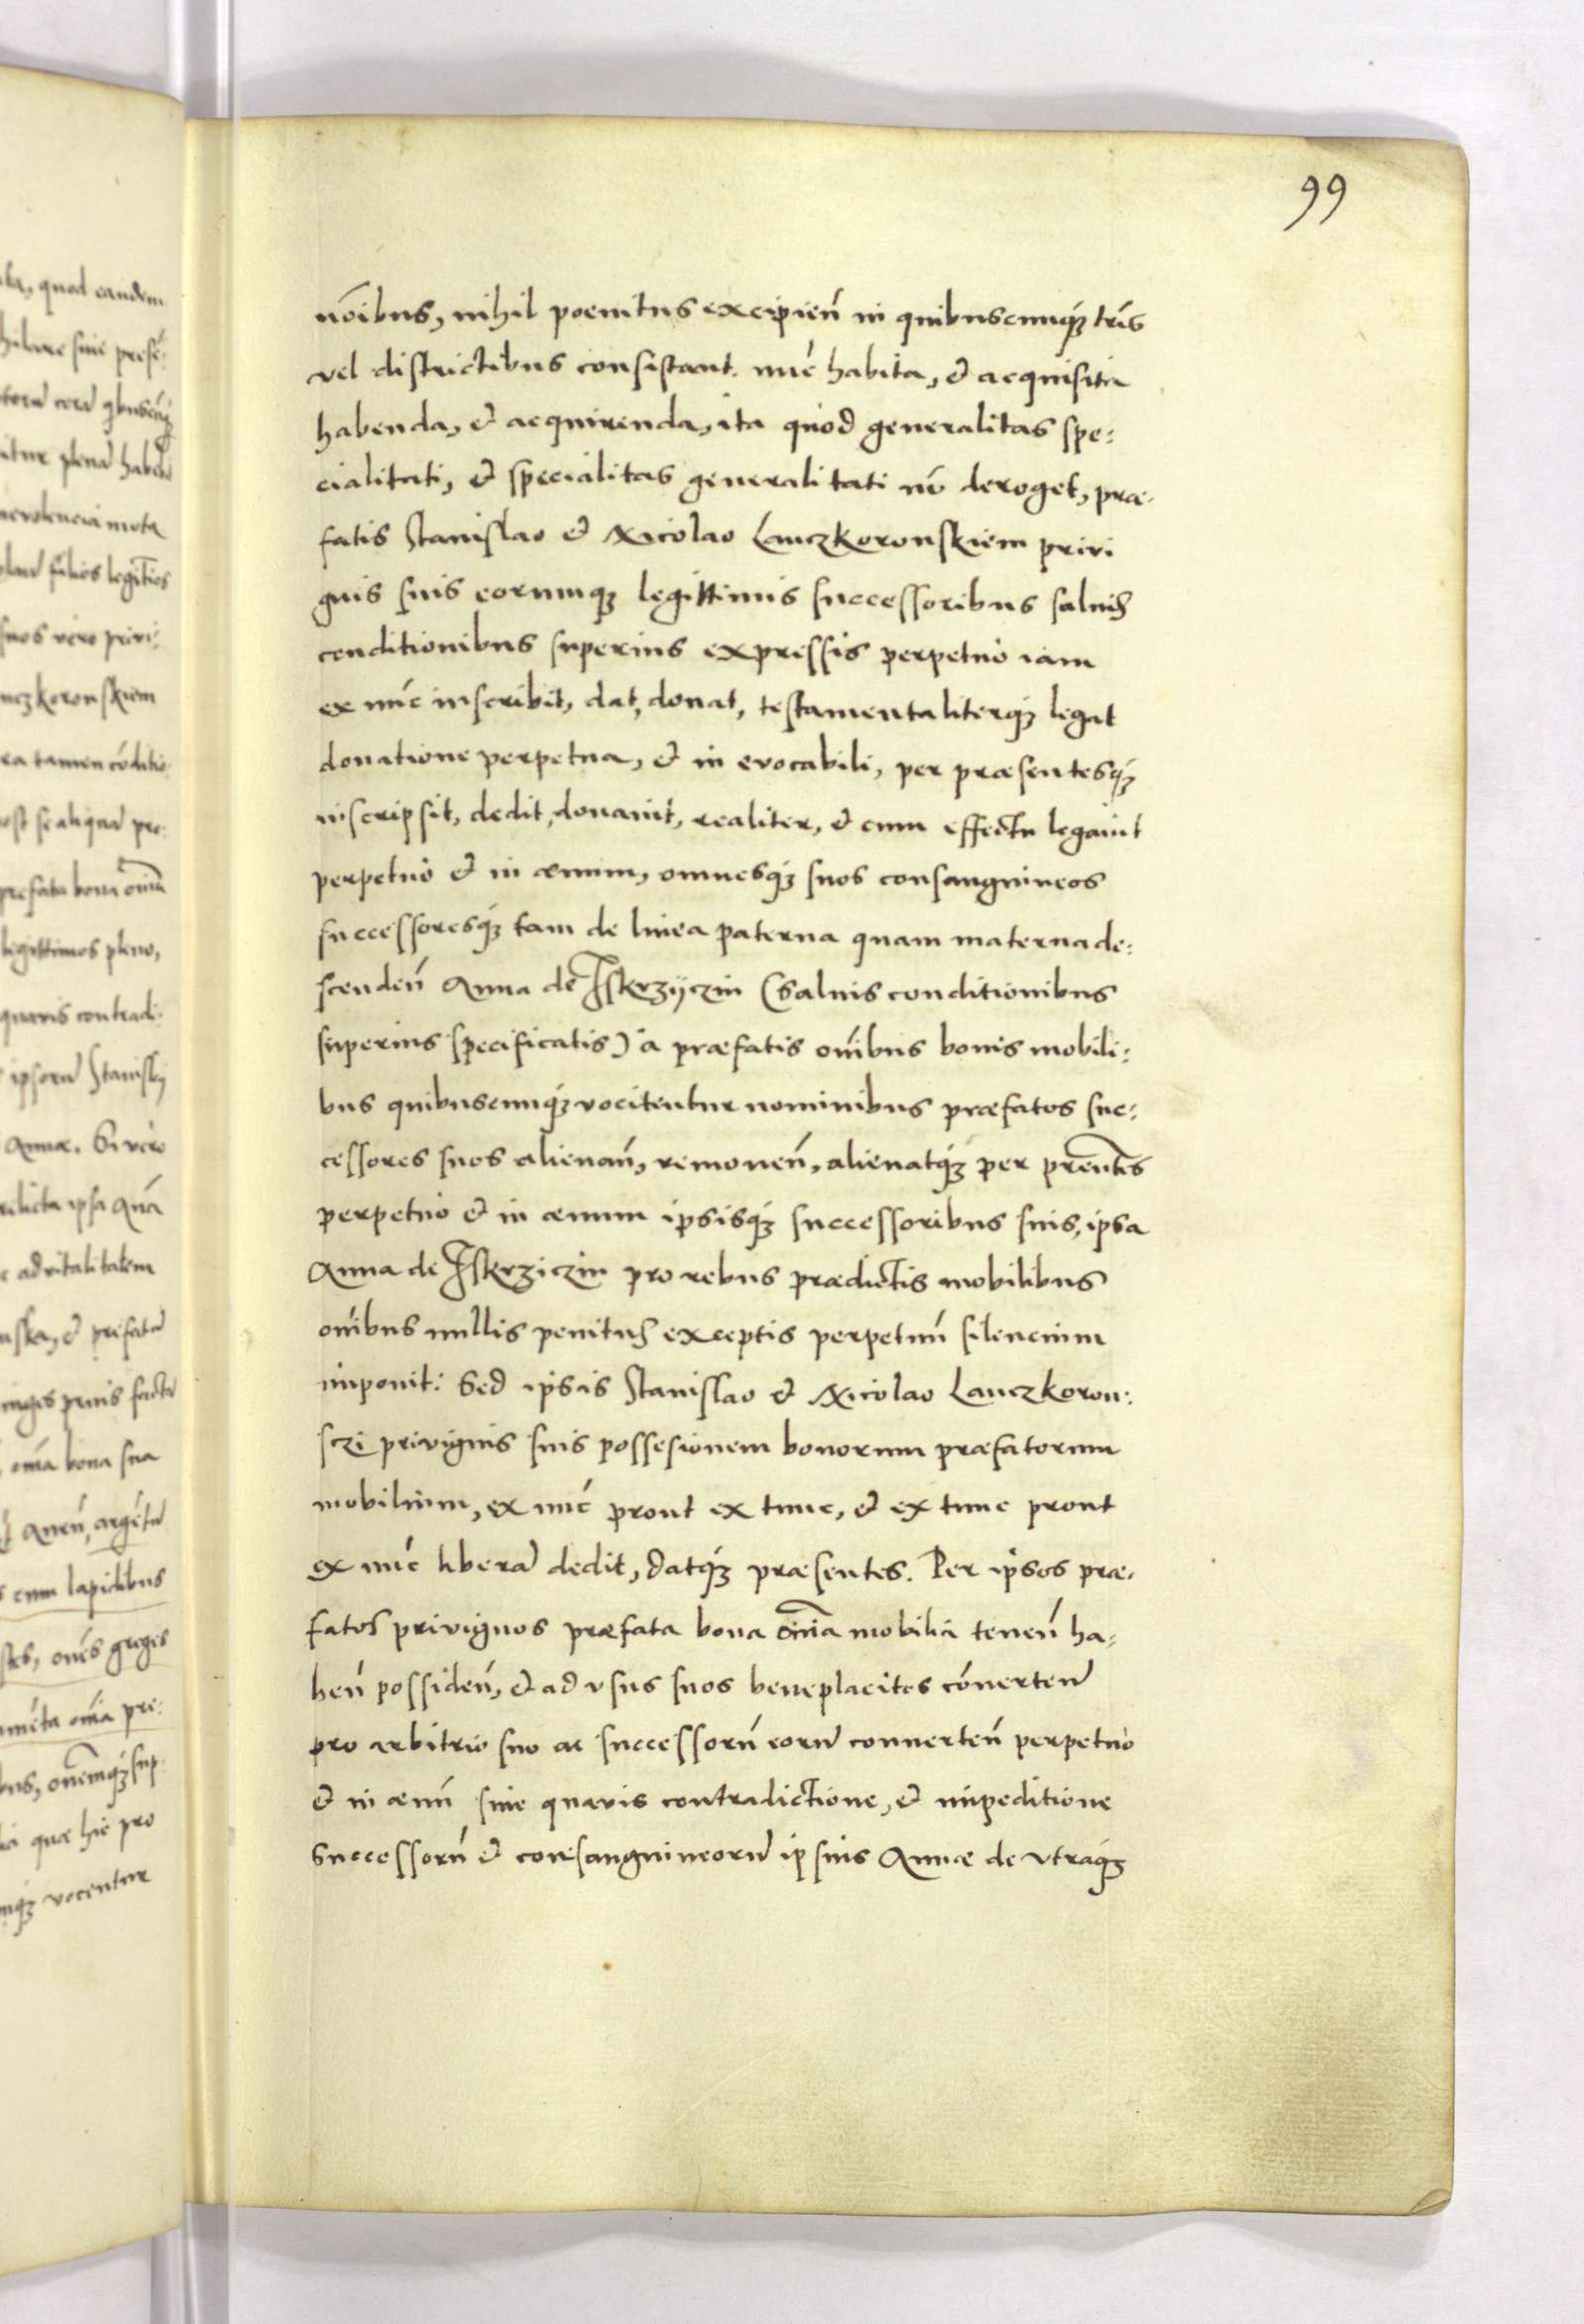 99
nõibus, nihil poenitus excipień in quibuscunq́ʒ tris̃
vel districtibus consistant. nuć habita, & acquisita
habenda, & acquirenda, ita quòd generalitas spe:
cialitati, & specialitas generalitati nõ deroget, præ-
fatis Stanislao & Nicolao Lanczkoronskiem privi
gnis suis eorumqʒ legittimis successoribus saluis
conditionibus superius expressis perpetuò iam
ex nuć inscribit, dat, donat, testamentaliterqʒ legat
donatione perpetua, & in evocabili, per præsentesq́ʒ
inscripsit, dedit, donauit, realiter, & cum effectu legauit
perpetuò & in æuum, omnesq́ʒ suos consanguineos
successoresq́ʒ tam de linea paterna quam materna de:
scendeń Anna de Iskrzÿczin (Saluis conditionibus
superius specificatis) à præfatis ońibus bonis mobili:
bus quibuscunq́ʒ vocitentur nominibus præfatos suc:
cessores suos alienań, remoueń, alienatq́ʒ per prñtes
perpetuò & in æuum ipsisq́ʒ successoribus suis, ipsa
Anna de Iskrziczin pro rebus prædictis mobilibus
ońibus nullis penitus exceptis perpetuũ silencium
imponit: Sed ipsis Stanislao & Nicolao Lanczkoron:
sczi privignis suis possesionem bonorum præfatorum
mobilium, ex nuć prout ex tunc, & ex tunc prout
ex nuć liberã dedit, datq́ʒ præsentes. Per ipsos præ-
fatos privignos præfata bona om̃ia mobilia teneń ha-
beń possideń, & ad vsus suos beneplacitos cónerteñ
pro arbitrio suo ac successorũ eorũ conuerteń perpetuò
& in æuũ sine quavis contradictione, & impeditione
Successorũ & consanguineorũ ipsius Annæ de vtraq́ʒ